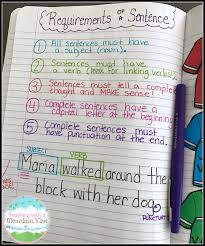 Requirements OF A Sentence
① All sentences must have
a subject (noun).
② Sentences must have
a verb (look for linking verbs!)
③ Sentences must tell a complete
thought and MAKE sense!
④ Complete sentences have a
capital letter at the beginning.
⑤ Complete sentences must
have punctuation at the end.
SUBJECT VERB
Maria walked around the
block with her dog.
PUNCTUATION
Teaching with a
Mountain View